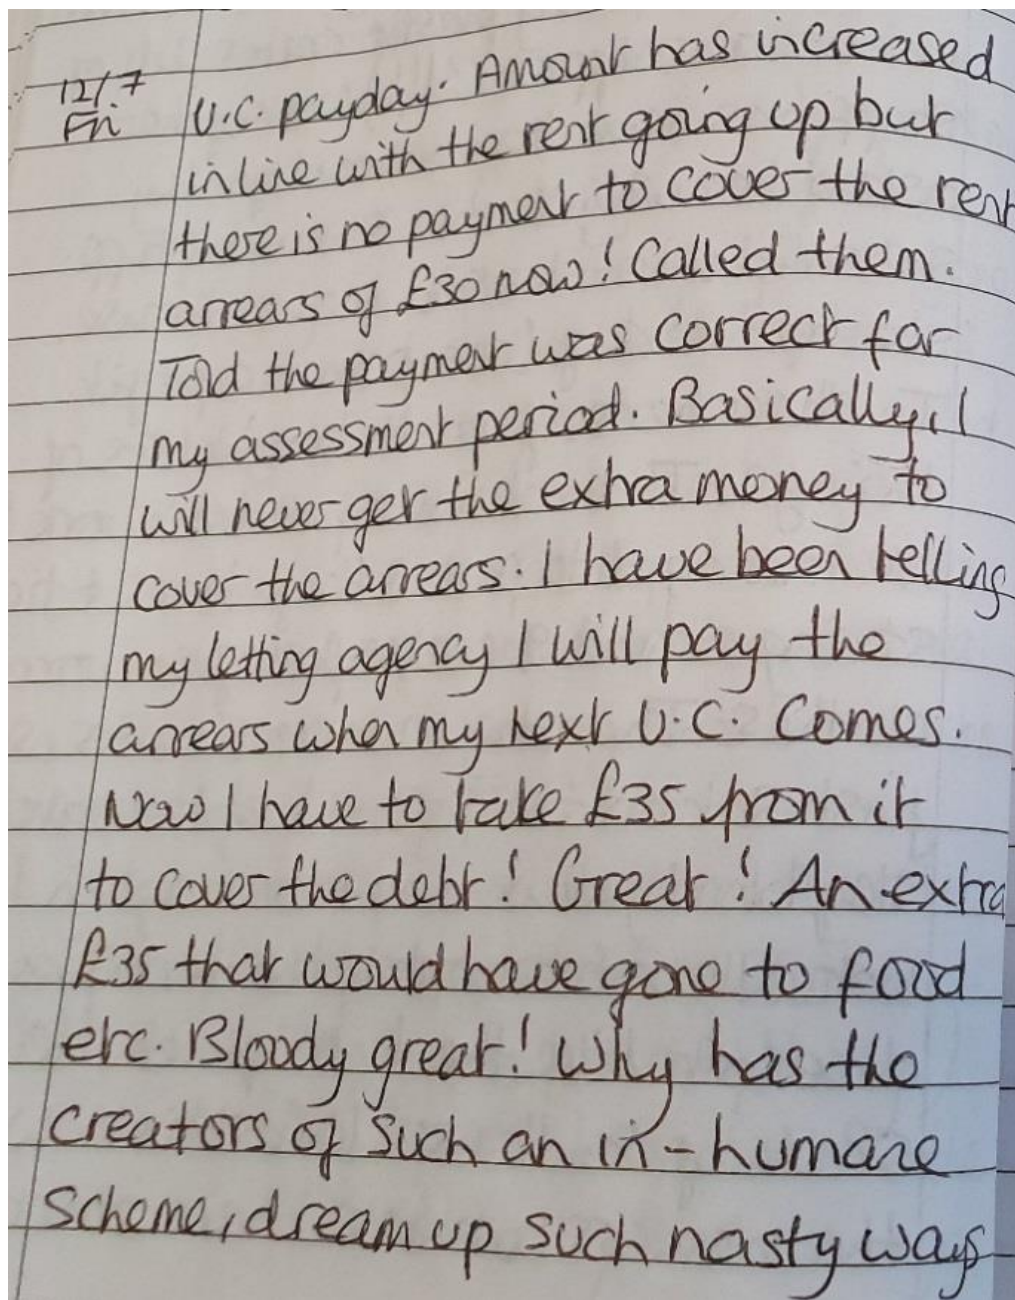 12/7
Fri.
U.C. payday. Amount has increased
in line with the rent going up but
there is no payment to cover the rent
arrears of £30 now! Called them.
Told the payment was correct for
my assessment period. Basically, I
will never get the extra money to
cover the arrears. I have been telling
my letting agency I will pay the
arrears when my next U.C. comes.
Now I have to take £35 from it
to cover the debt! Great! An extra
£35 that would have gone to food
etc. Bloody great! Why has the
creators of such an in-humane
scheme, dream up such nasty ways